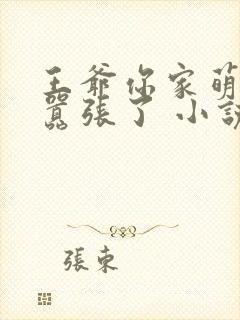 王爺你家萌
囂張了 小說
張東